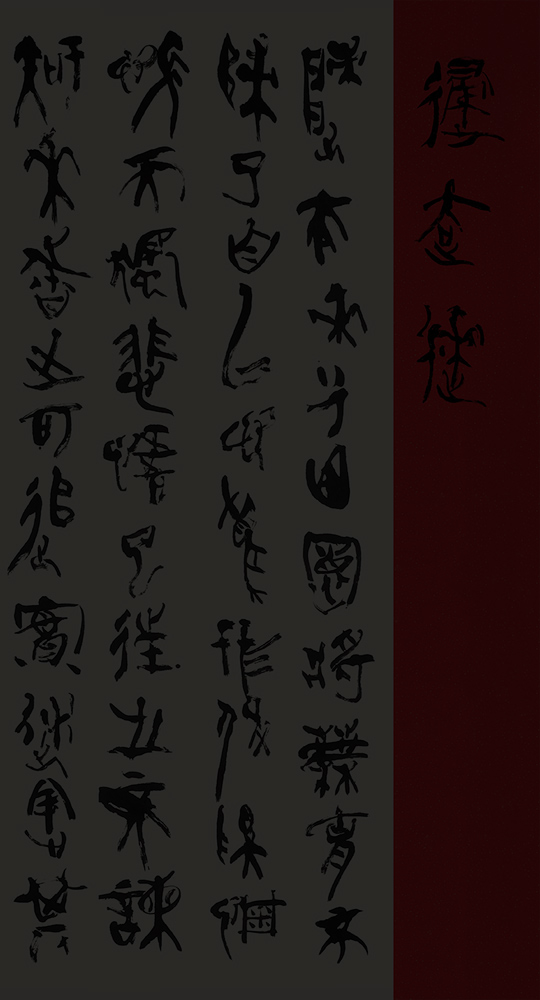 歸去來
歸去來兮田園將蕪胡不
歸既自以心為形役奚惆
悵而獨悲悟已往之不諫
知來者之可追實迷途其